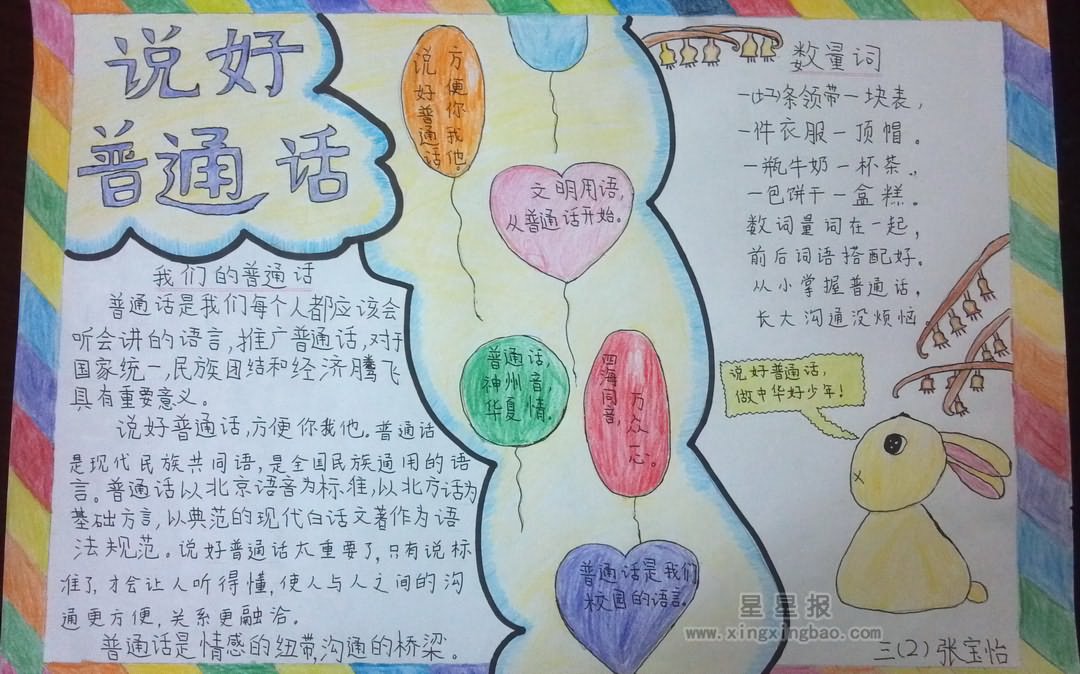 说好
普通话
我们的普通话
普通话是我们每个人都应该会
听会讲的语言,推广普通话,对于
国家统一,民族团结和经济腾飞
具有重要意义。
说好普通话,方便你我他。普通话
是现代民族共同语,是全国民族通用的语
言。普通话以北京语音为标准,以北方话为
基础方言,以典范的现代白话文著作为语
法规范。说好普通话太重要了,只有说标
准了,才会让人听得懂,使人与人之间的沟
通更方便,关系更融洽。
普通话是情感的纽带,沟通的桥梁。
说好普通话
方便你我他。
文明用语,
从普通话开始。
普通话,
神州音,
华夏情。
四海同音,
万众一心。
普通话是我们
校园的语言。
数量词
一条领带一块表,
一件衣服一顶帽。
一瓶牛奶一杯茶.,
一包饼干一盒糕。
数词量词在一起,
前后词语搭配好。
从小掌握普通话,
长大沟通没烦恼
说好普通话,
做中华好少年!
星星报
www.xingxingbao.com
三(2)张宝怡